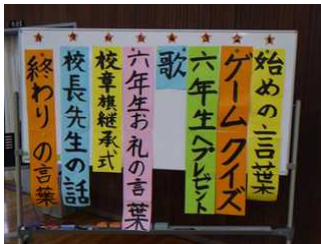 始めの言葉
ゲームクイズ
六年生へプレゼント
歌
六年生お礼の言葉
校章旗継承式
校長先生の話
終わりの言葉